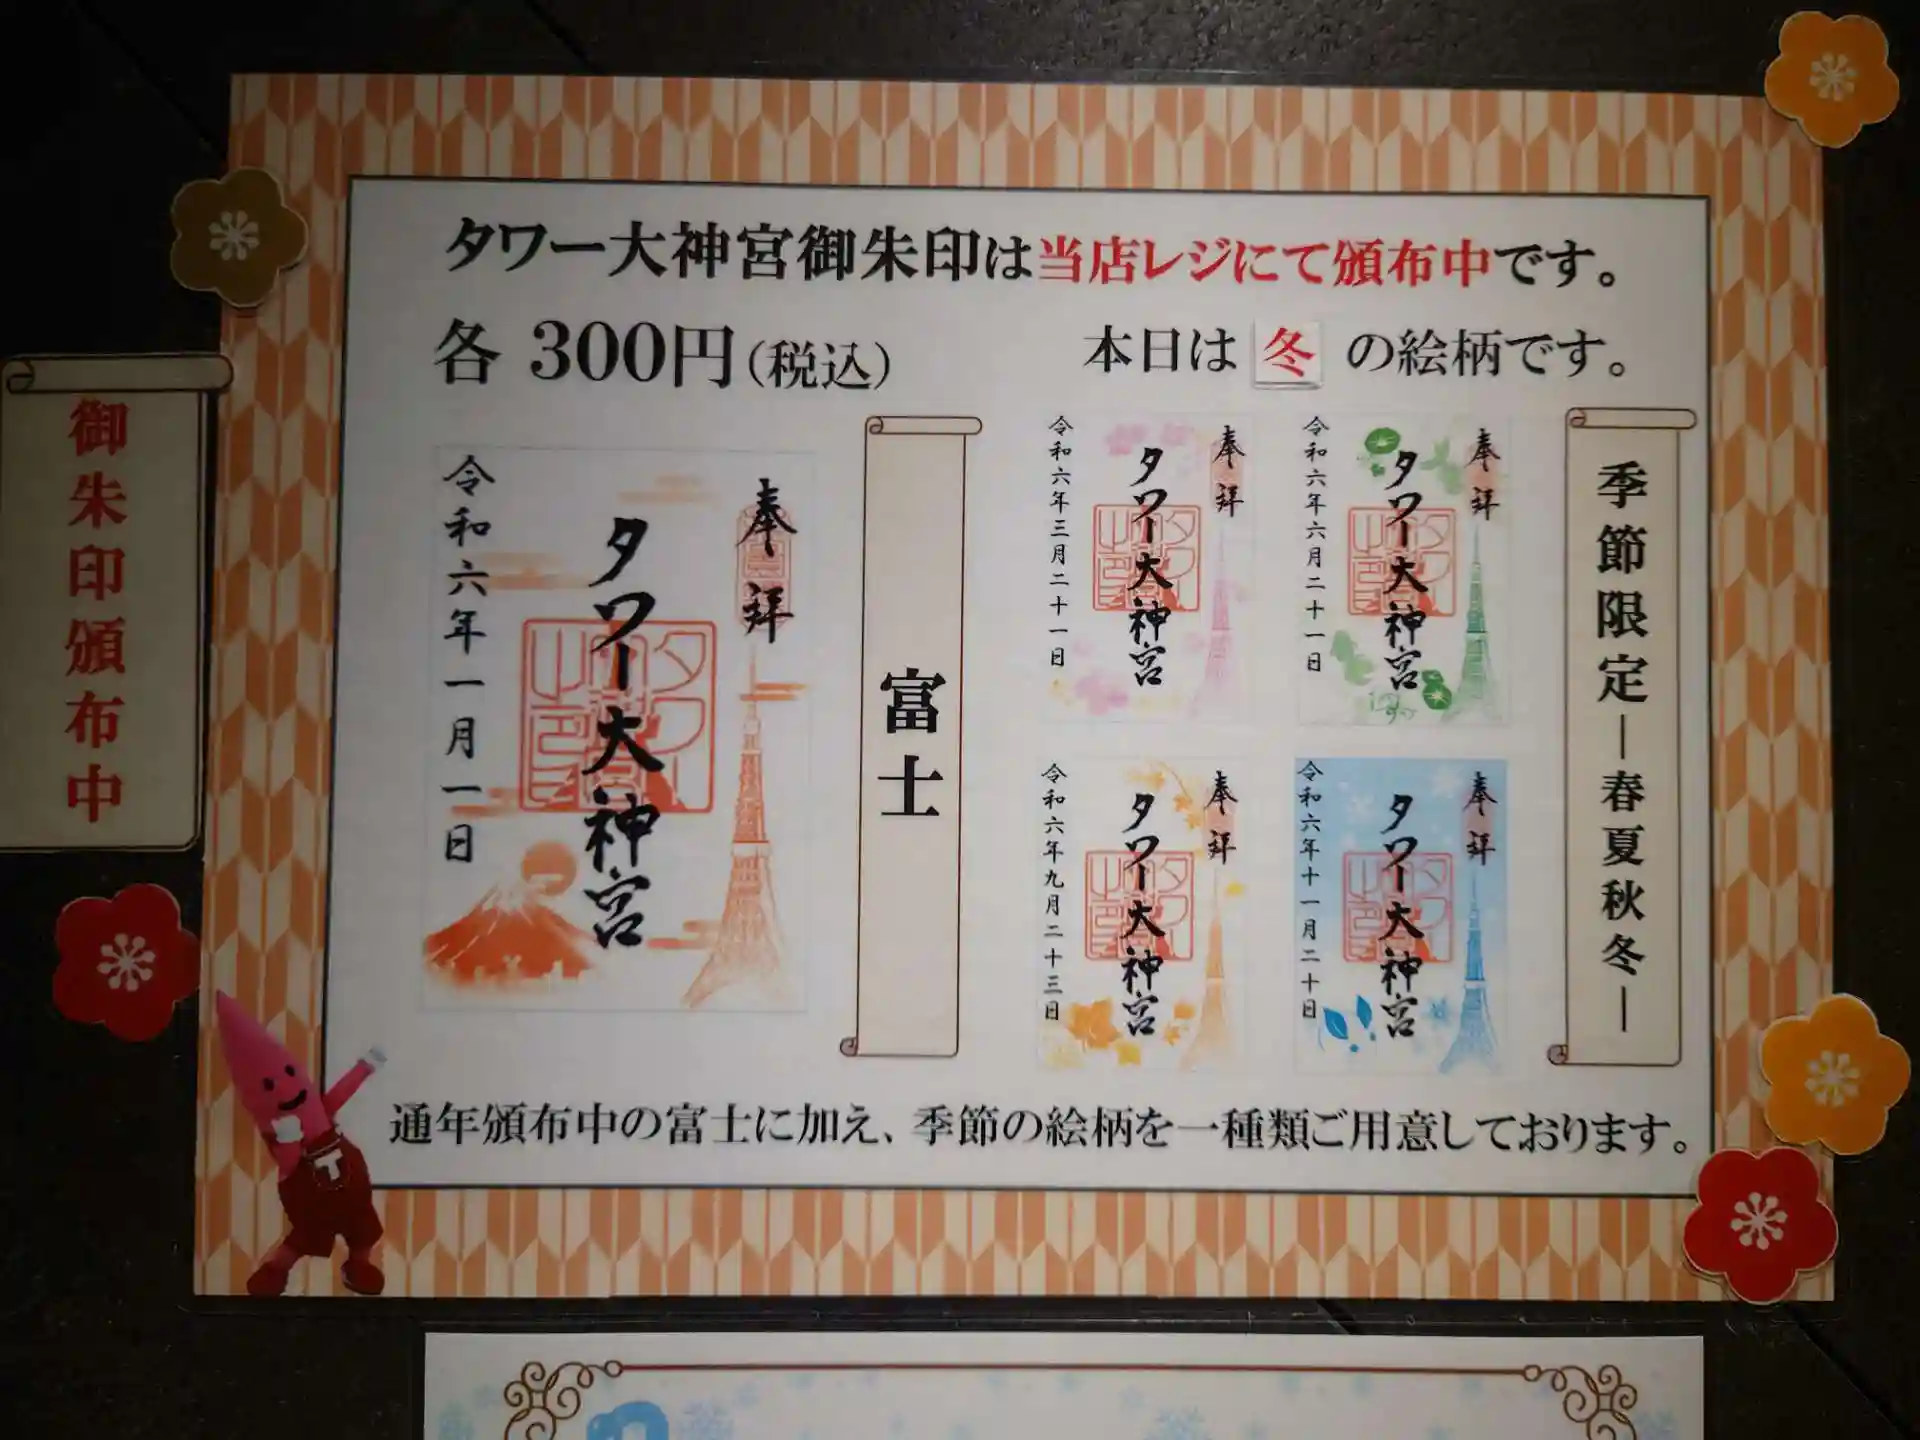 タワー大神宮御朱印は当店レジにて頒布中です。
各 300円(税込)
本日は 冬 の絵柄です。
御朱印頒布中
奉拝
タワー大神宮
令和六年一月一日
富士
奉拝
タワー大神宮
令和六年三月二十一日
奉拝
タワー大神宮
令和六年六月二十一日
奉拝
タワー大神宮
令和六年九月二十三日
奉拝
タワー大神宮
令和六年十一月二十日
季節限定―春夏秋冬―
通年頒布中の富士に加え、季節の絵柄を一種類ご用意しております。
T